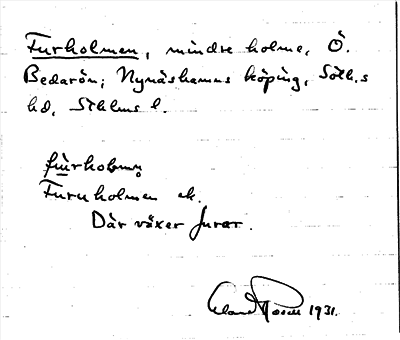 Furholmen, mindre holme, Ö.
Bedarön; Nynäshamns köping, Soth.s
hd, Sthlms l.
fùrholmɐn
Furuholmen ek.
Där växer furar.
1931.